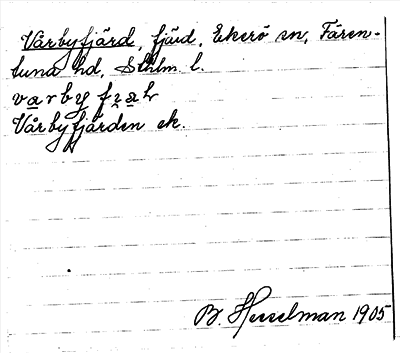 Vårbyfjärd, fjärd, Ekerö sn, Fären-
tuna hd, Sthlm. l.
Vårbyfjärden ek.
B. Hesselman 1905